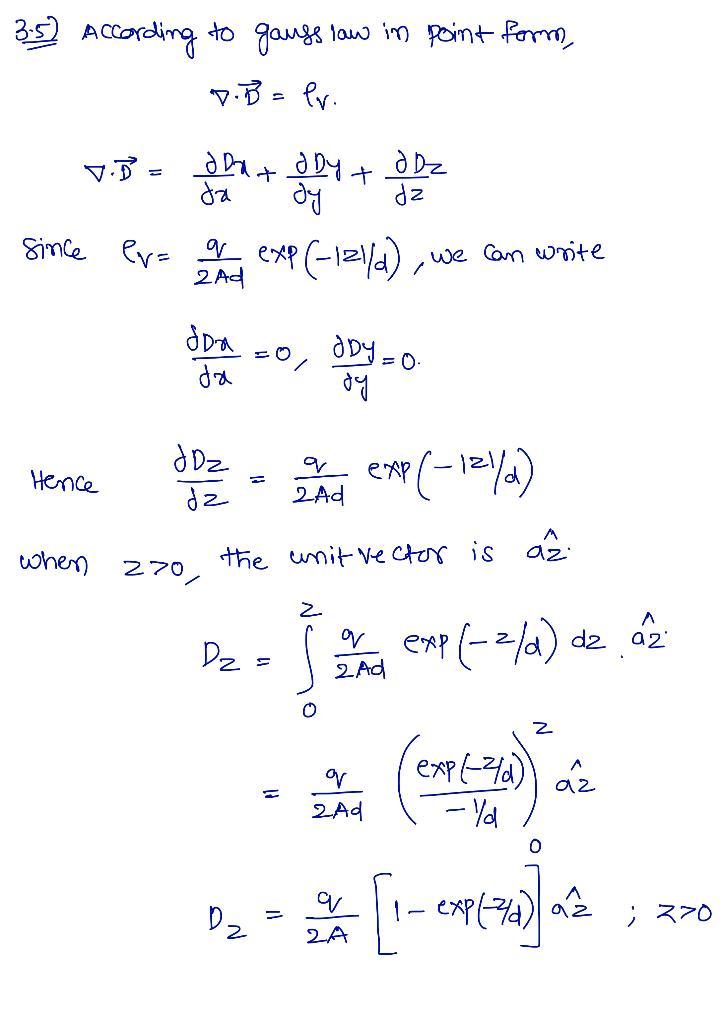 3.5) According to gauss law in point form,
∇·D⃗ = ρv.
∇·D⃗ = ∂Dx/∂x + ∂Dy/∂y + ∂Dz/∂z
Since ρv = q/2Ad exp(-|z|/d), we can write
∂Dx/∂x = 0, ∂Dy/∂y = 0.
Hence ∂Dz/∂z = q/2Ad exp(-|z|/d)
when z>0, the unit vector is âz.
Dz = ∫₀^z q/2Ad exp(-z/d) dz . âz.
= q/2Ad (exp(-z/d)/(-1/d))₀^z âz
Dz = q/2A [1 - exp(-z/d)] âz ; z>0